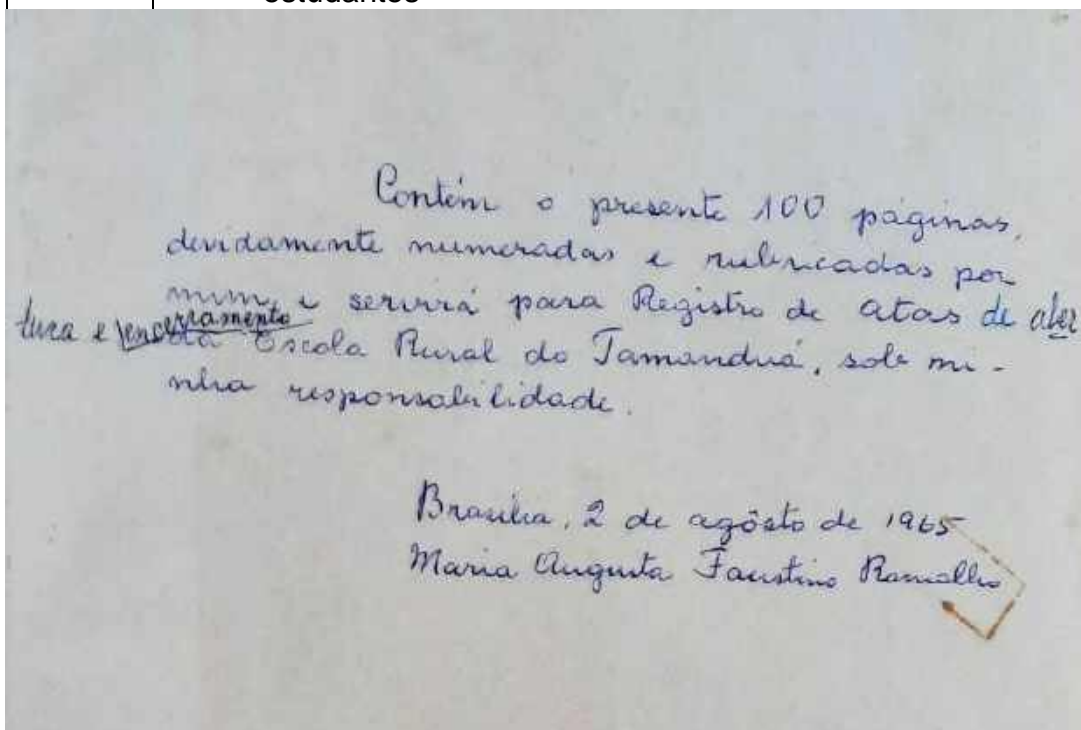 estudantes
Contém o presente 100 páginas,
devidamente numeradas e rubricadas por
mim, e servirá para Registro de atas de aber
tura e encerramento
da Escola Rural do Tamanduá, sob mi-
nha responsabilidade.
Brasília, 2 de agôsto de 1965
Maria Augusta Faustino Ramalho